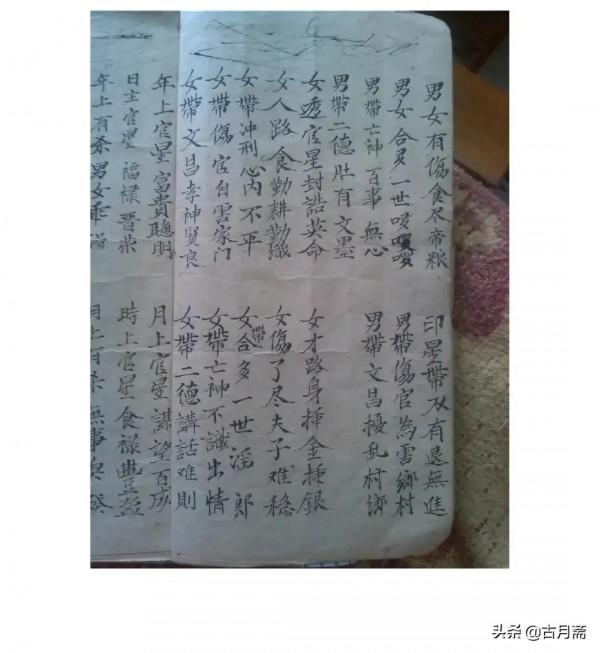 男女有傷食尽帝粮 印星帶刄有退無進
男女合多一世 男帶傷官為雲鄉村
男帶亡神百事無心 男帶文昌擾乱村鄉
男帶二德肚有文墨
女透官星封誥英命 女才路身挿金挿銀
女人路食勤耕勤織 女傷了尽夫子难穏
女帶冲刑心内不平 女帶合多一世滛郎
女帶傷官白雲家门 女帶亡神不識出情
女帶文昌孝神賢良 女帶二德講話难則
年上官星富貴聰明 月上官星謀望百成
日主官星福禄晋荣 時上官星食禄豊盈
年上有杀男女乖 月上有杀無事
头条 @古月斋